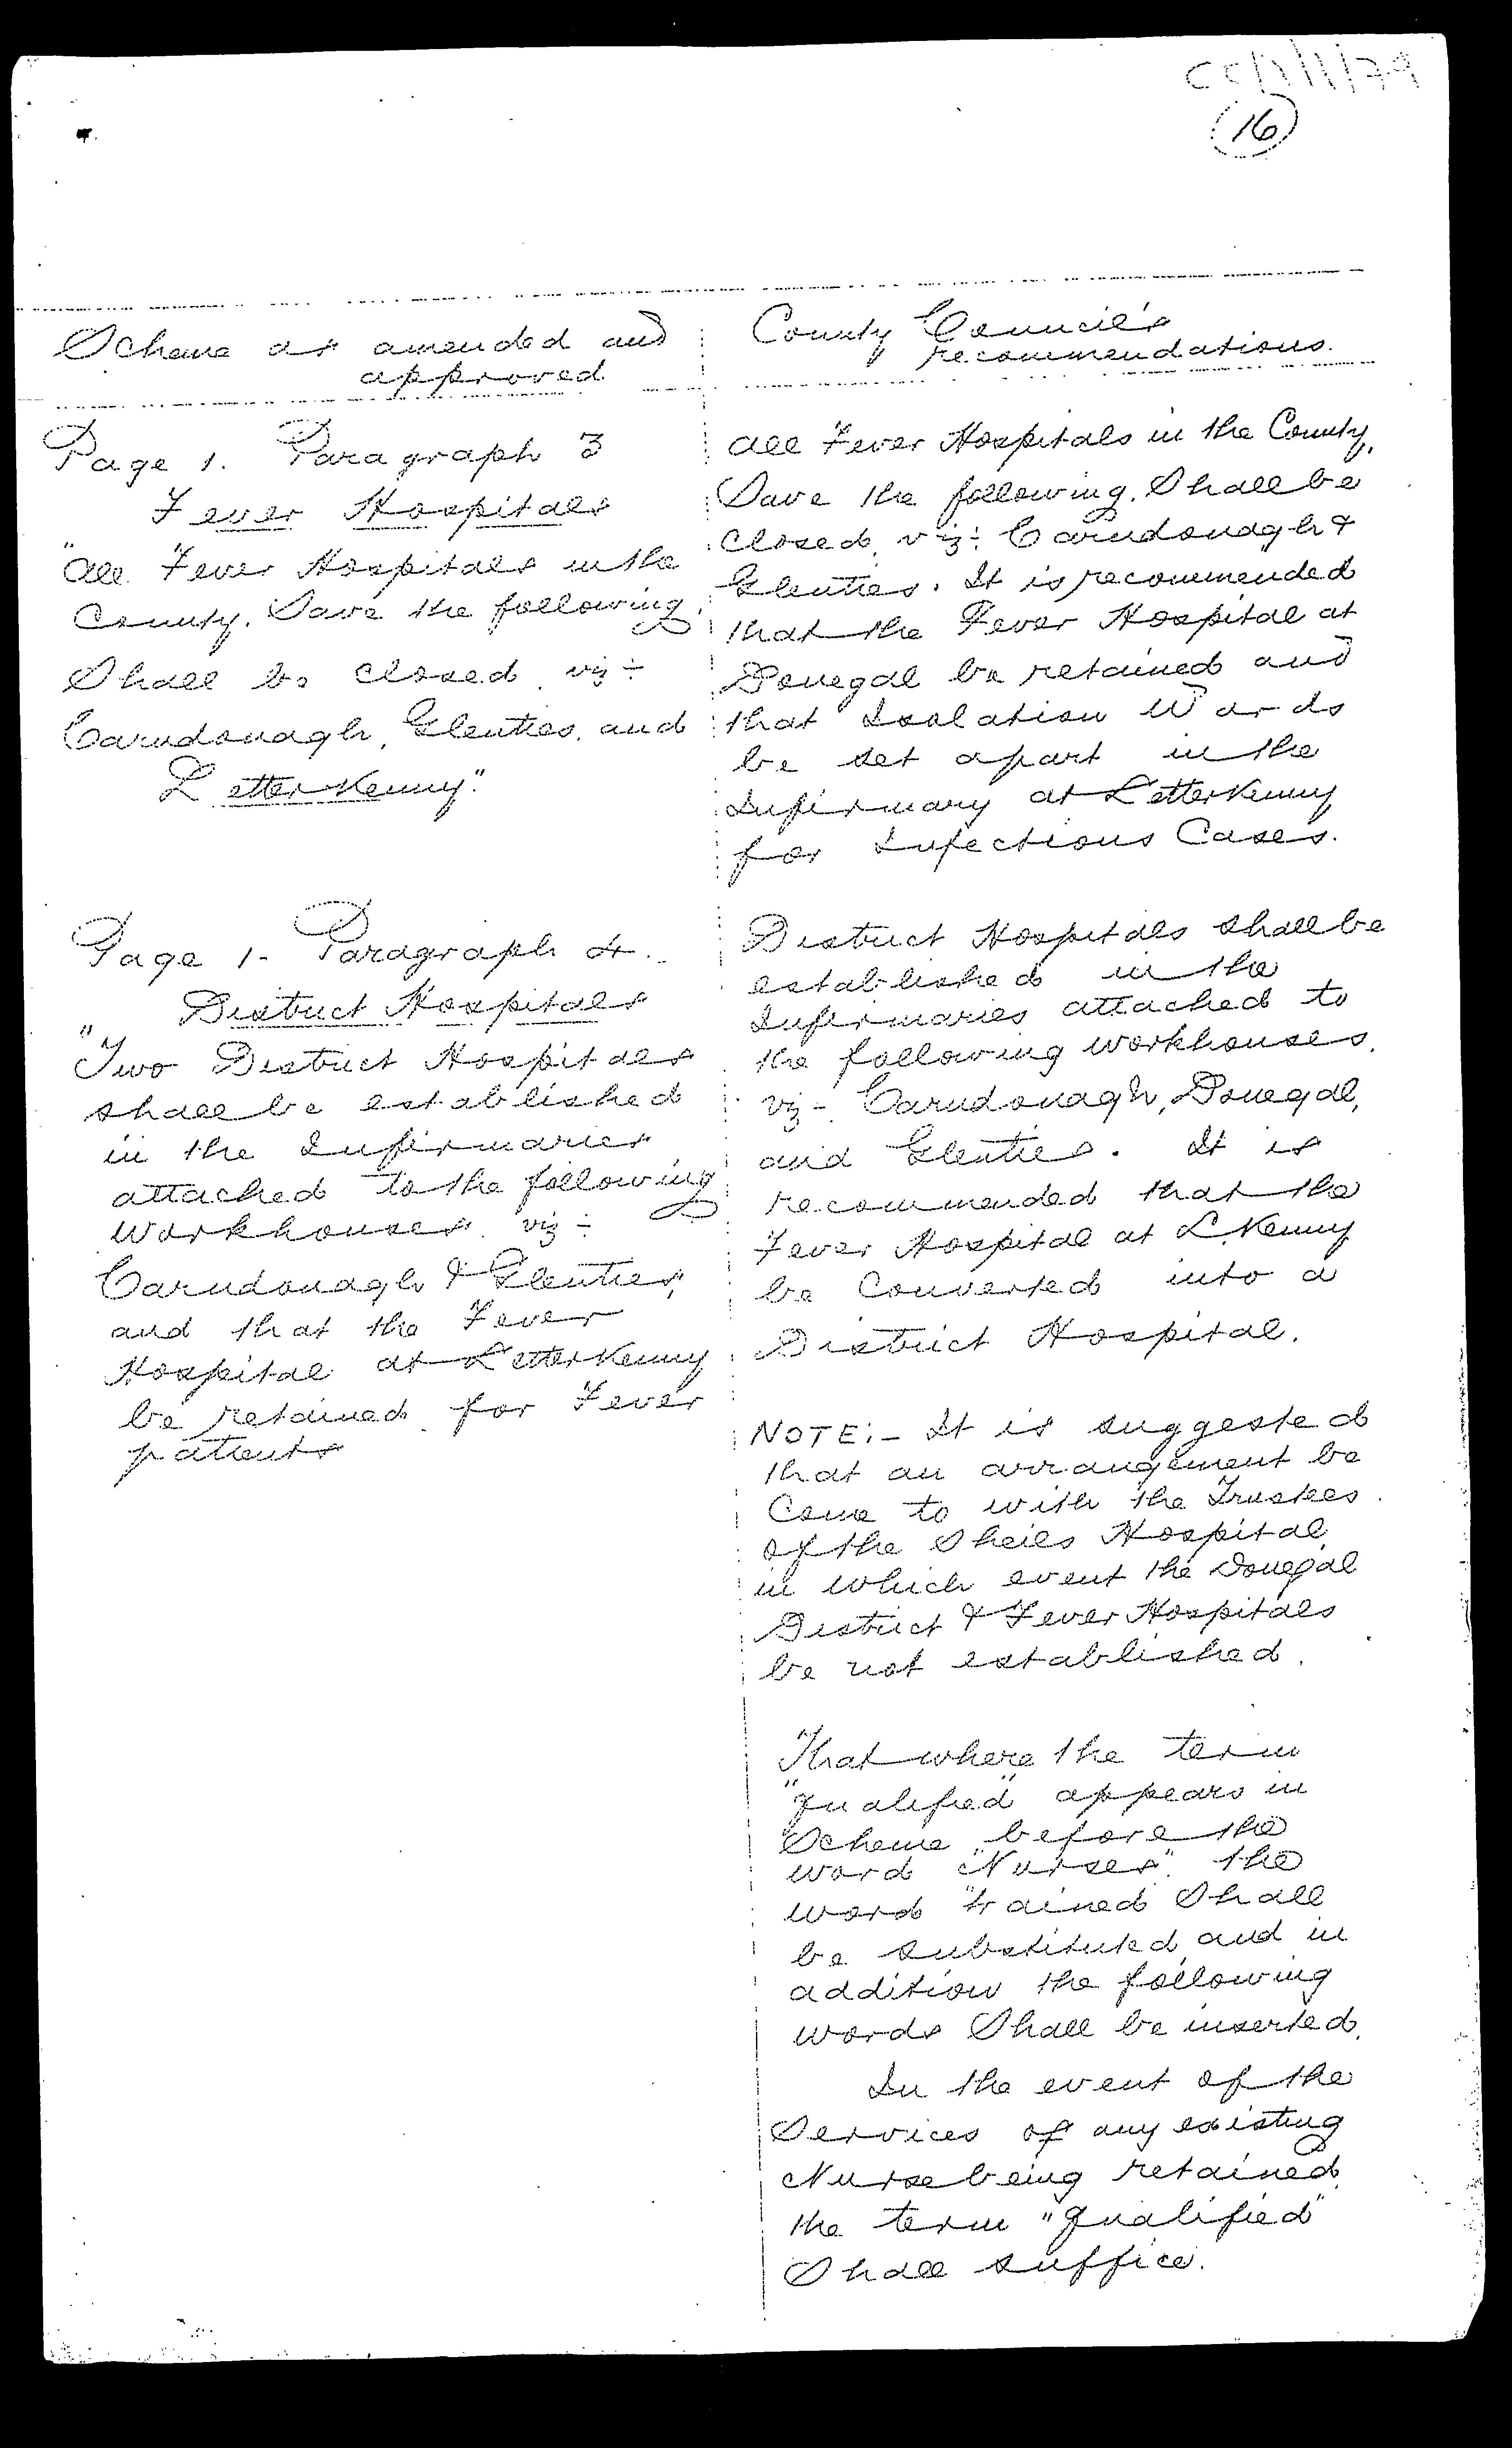 CC/1/1/79
16
Scheme as amended and
approved.
Page 1. Paragraph 3
Fever Hospitals
"All Fever Hospitals in the
County. Save the following
Shall be closed viz:-
Carndonagh, Glenties, and
Letterkenny."
Page 1- Paragraph 4.
District Hospitals
"Two District Hospitals
shall be established
in the Infirmaries
attached to the following
Workhouses viz:-
Carndonagh & Glenties,"
and that the Fever
Hospital at Letterkenny
be retained for Fever
patients
County Council's
recommendations.
All Fever Hospitals in the County,
Save the following, Shall be
Closed, viz:- Carndonagh &
Glenties. It is recommended
that the Fever Hospital at
Donegal be retained and
that Isolation Wards
be set apart in the
Infirmary at Letterkenny
for Infectious Cases.
District Hospitals shall be
established in the
Infirmaries attached to
the following workhouses,
viz- Carndonagh, Donegal,
and Glenties. It is
recommended that the
Fever Hospital at L.Kenny
be Converted into a
District Hospital.
NOTE:- It is suggested
that an arrangement be
Come to with the Trustees
of the Sheils Hospital,
in which event the Donegal
District & Fever Hospitals
be not established.
That where the term
"Qualified" appears in
Scheme, before the
word "Nurses", the
word "trained Shall
be substituted, and in
addition the following
words Shall be inserted,
In the event of the
Services of any existing
Nurse being retained,
the term "Qualified"
Shall suffice.